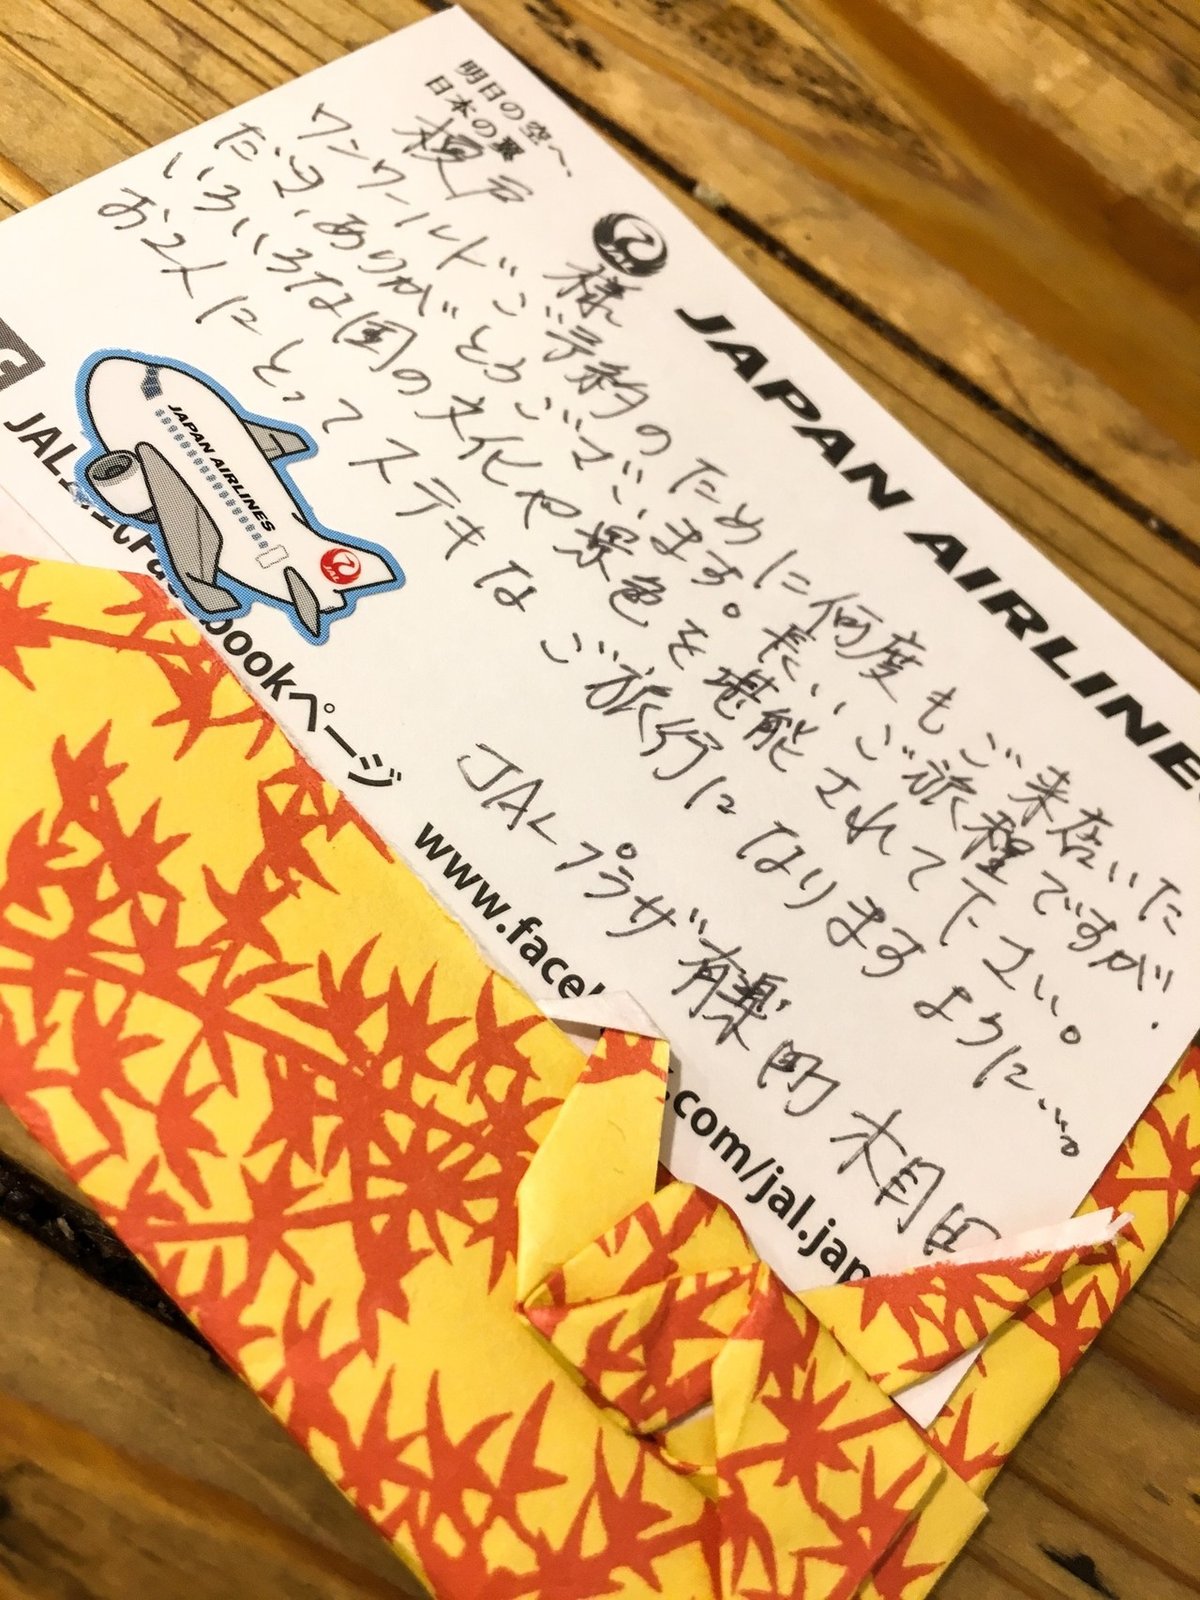 明日の空へ、
日本の翼
JAPAN AIRLINE
榎戸 様
ワンワールドご予約のために何度もご来店いた
だき、ありがとうございます。長いご旅程ですが、
いろいろな国の文化や景色を堪能されて下さい。
お2人にとってステキなご旅行になりますように…。
JALプラザ有楽町 木月田
JAPAN AIRLINES
JAL
bookページ
www.facel
.com/jal.jap